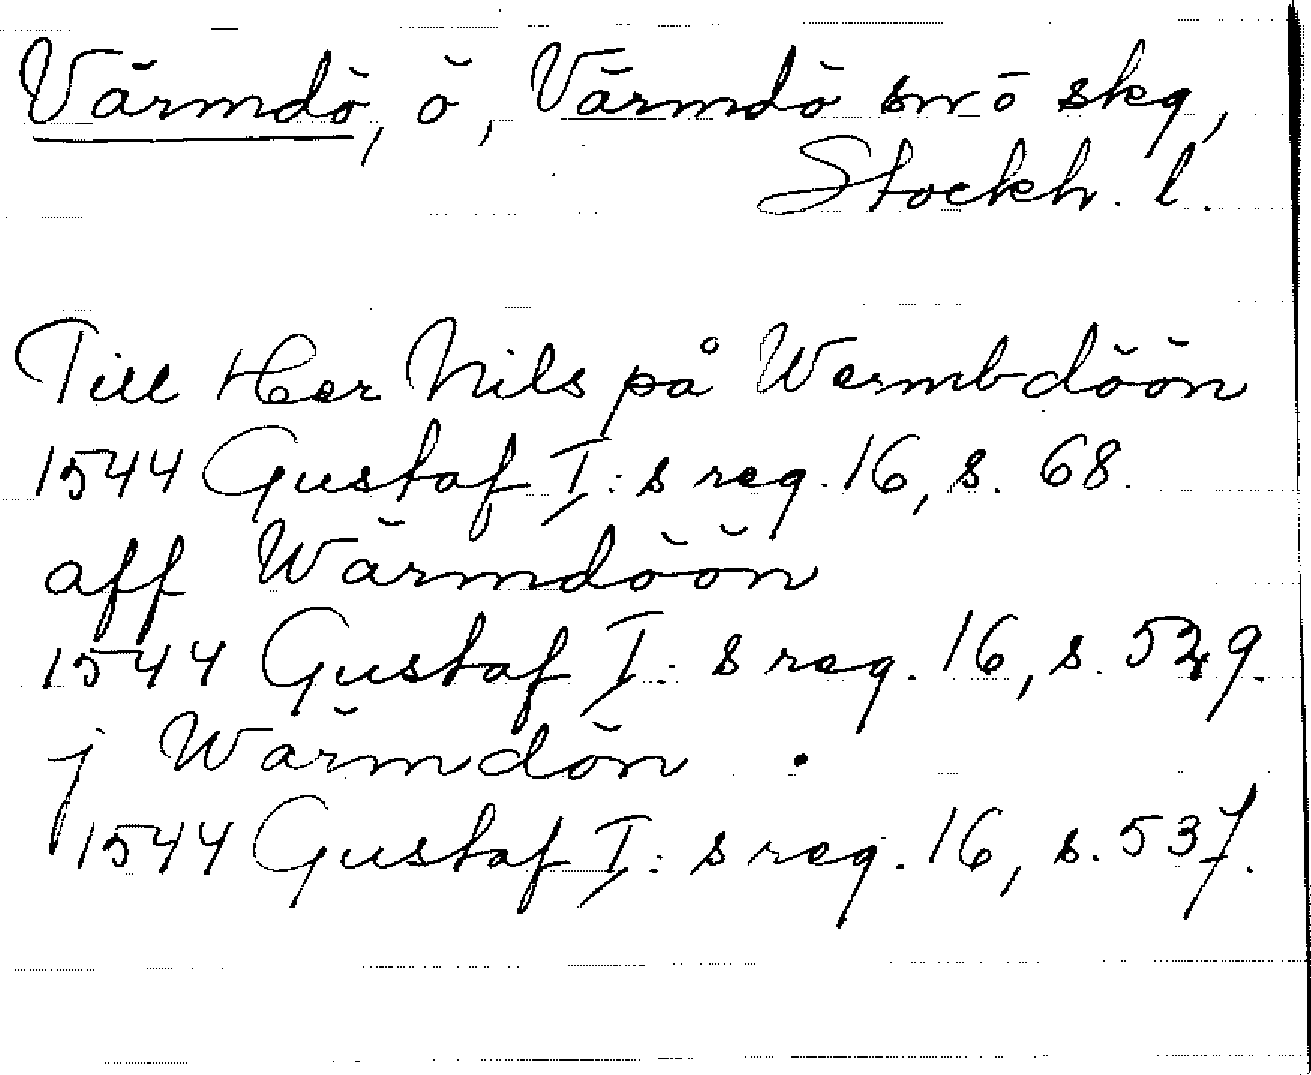 Värmdö, ö, Värmdö snö skg,
Stockh. l.
Till Her Nils på Wermbdöön
1544 Gustaf I:s reg. 16, s. 68.
aff Wärmdöön
1544 Gustaf I:s reg. 16, s. 529.
j Wärmdön .
1544 Gustaf I:s reg. 16, s. 537.